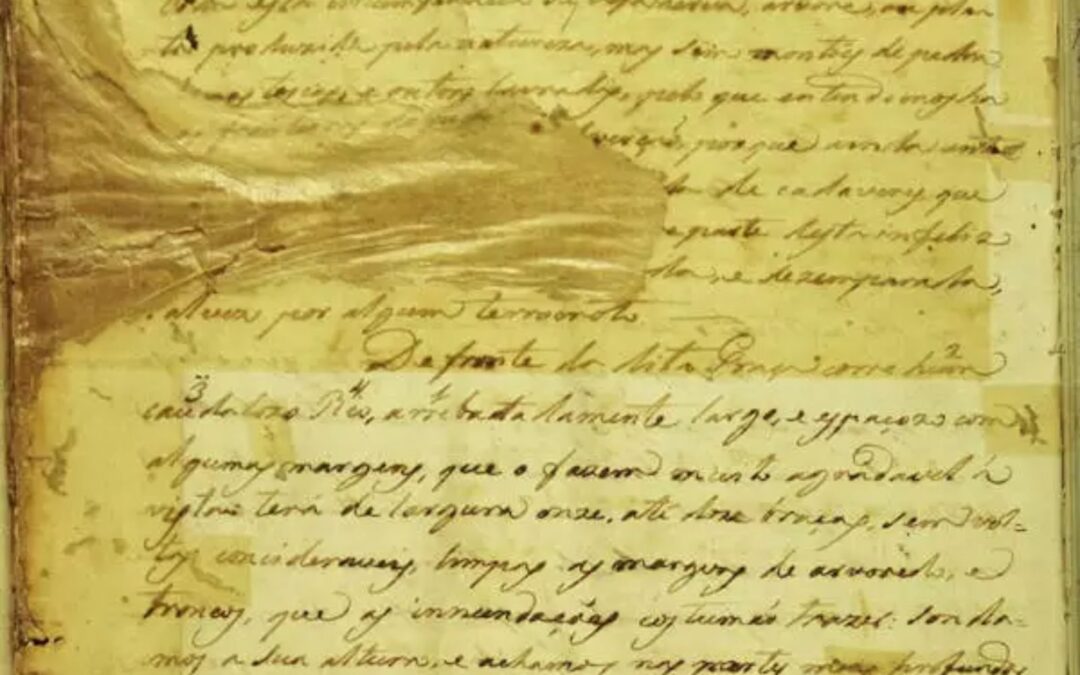 herva, arvore, ou plan
ta produzida pela natureza, mas sim montões de pedra
toscas, e outras lavradas, pelo que entendemos ha
verção, porque ainda entre
da de cadaveres que
e parte desta infeliz
da, e dezemparada,
talvez por algum terremoto.
Defronte da dita Praça corre hum 2
3 caudalozo Rio, 4 arrebatadamente largo, e espaçozo com
algumas margens, que o fazem muito agradavel á
vista: terá de largura onze, até doze braças, sem vol=
tas concideraveis, limpas as margens de arvoredo, e
troncos, que as innundações costumaõ trazer: sonda-
mos a sua altura, e achamos nas partes mais profundas